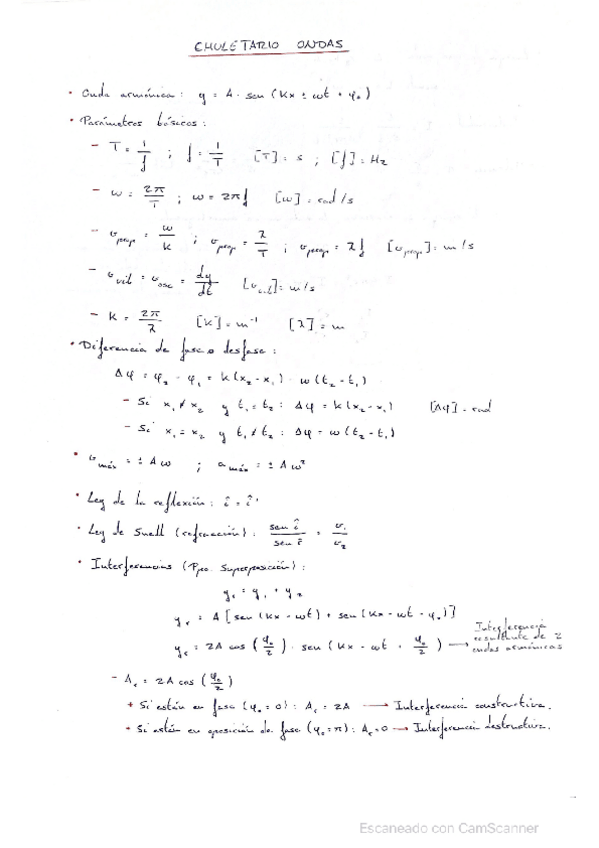 CHULETARIO ONDAS
• Onda armónica: y = A · sen (Kx ± ωt + φ₀)
• Parámetros básicos:
- T = 1/f ; f = 1/T [T] = s ; [f] = Hz
- ω = 2π/T ; ω = 2πf [ω] = rad/s
- v prop = ω/k ; v prop = λ/T ; v prop = λf [v prop] = m/s
- v vib = v osc = dy/dt [v vib] = m/s
- K = 2π/λ [K] = m⁻¹ [λ] = m
• Diferencia de fase o desfase:
Δφ = φ₂ - φ₁ = k(x₂ - x₁) · ω(t₂ - t₁)
- Si x₁ ≠ x₂ y t₁ = t₂ : Δφ = k(x₂ - x₁) [Δφ] = rad
- Si x₁ = x₂ y t₁ ≠ t₂ : Δφ = ω(t₂ - t₁)
• v máx = ± Aω ; a máx = ± Aω²
• Ley de la reflexión: î = î'
• Ley de Snell (refracción): sen î / sen r̂ = v₁/v₂
• Interferencias (Ppo. Superposición):
yᵣ = y₁ + y₂
yᵣ = A [sen (Kx - ωt) + sen (Kx - ωt - φ₀)]
yᵣ = 2A cos (φ₀/2) · sen (Kx - ωt + φ₀/2) → Interferencia resultante de 2 ondas armónicas
- Aᵣ = 2A cos (φ₀/2)
+ Si están en fase (φ₀ = 0) : Aᵣ = 2A → Interferencia constructiva.
+ Si están en oposición de fase (φ₀ = π) : Aᵣ = 0 → Interferencia destructiva.
Escaneado con CamScanner